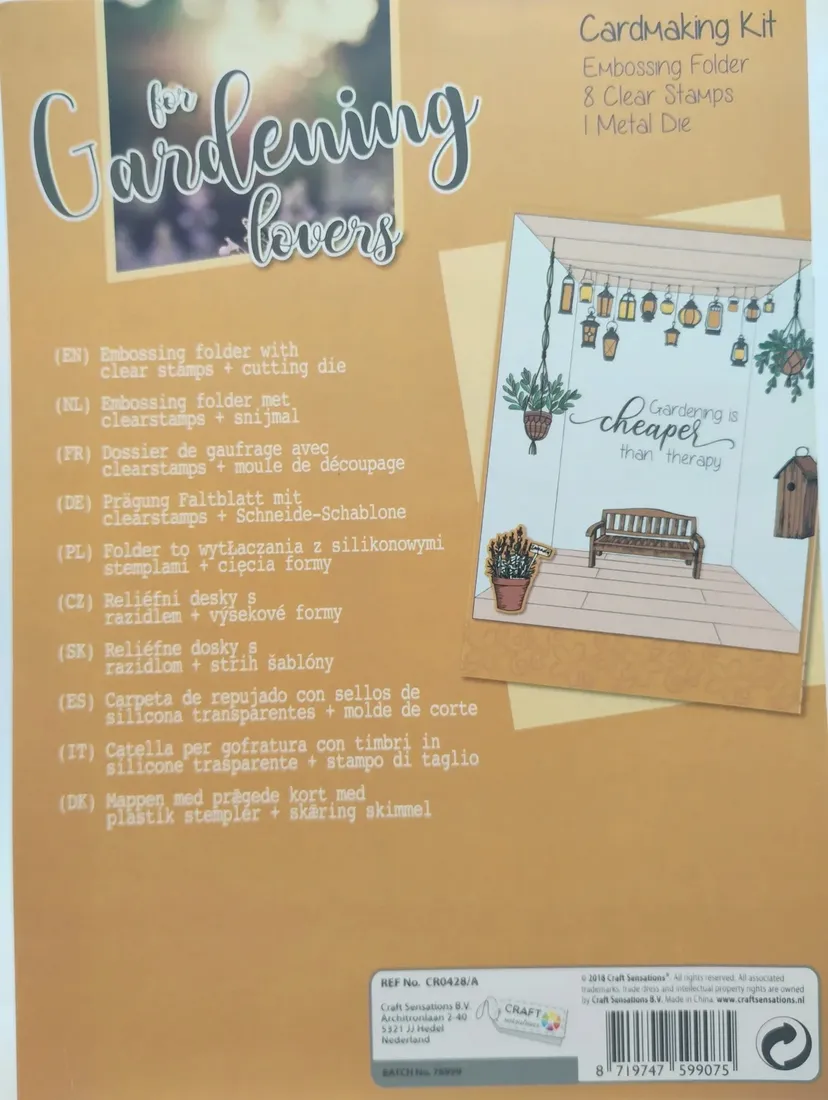 for
Gardening
lovers
Cardmaking Kit
Embossing Folder
8 Clear Stamps
1 Metal Die
Gardening is
cheaper
than therapy
(EN) Embossing folder with
clear stamps + cutting die
(NL) Embossing folder met
clearstamps + snijmal
(FR) Dossier de gaufrage avec
clearstamps + moule de découpage
(DE) Prägung Faltblatt mit
clearstamps + Schneide-Schablone
(PL) Folder to wytŁaczania z silikonowymi
stemplami + cięcia formy
(CZ) Reliéfni desky s
razidlem + výsekové formy
(SK) Reliéfne dosky s
razidlom + strih šablóny
(ES) Carpeta de repujado con sellos de
silicona transparentes + molde de corte
(IT) Catella per gofratura con timbri in
silicone trasparente + stampo di taglio
(DK) Mappen med prægede kort med
plastik stempler + skæring skimmel
REF No. CR0428/A
Craft Sensations B.V.
Architronlaan 2-40
5321 JJ Hedel
Nederland
CRAFT
BATCH No.
© 2018 Craft Sensations®. All rights reserved. All associated
trademarks, trade dress and intellectual property rights are owned
by Craft Sensations B.V. Made in China. www.craftsensations.nl
8 719747 599075